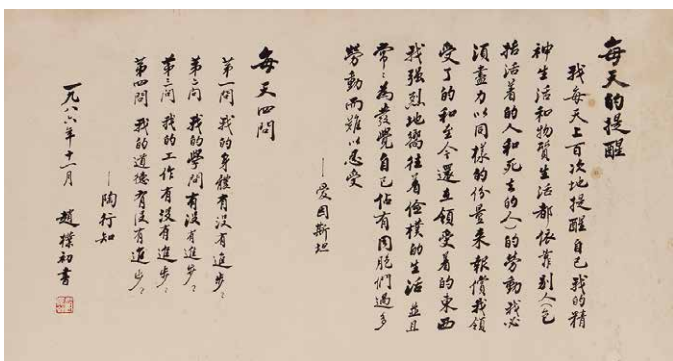 每天的提醒
我每天上百次地提醒自己我的精
神生活和物質生活都依靠別人(包
括活着的人和死去的人)的勞動我必
須盡力以同樣的份量来報償我領
受了的和至今還在領受着的東西
我强烈地嚮往着儉樸的生活並且
常〻為發覺自己佔有同胞們過多
勞動而難以忍受
—愛因斯坦
每天四問
第一問我的身體有没有進步〻
第二問我的學問有没有進步〻
第三問我的工作有没有進步〻
第四問我的道德有没有進步〻
—陶行知
一九八六年十一月 趙樸初書